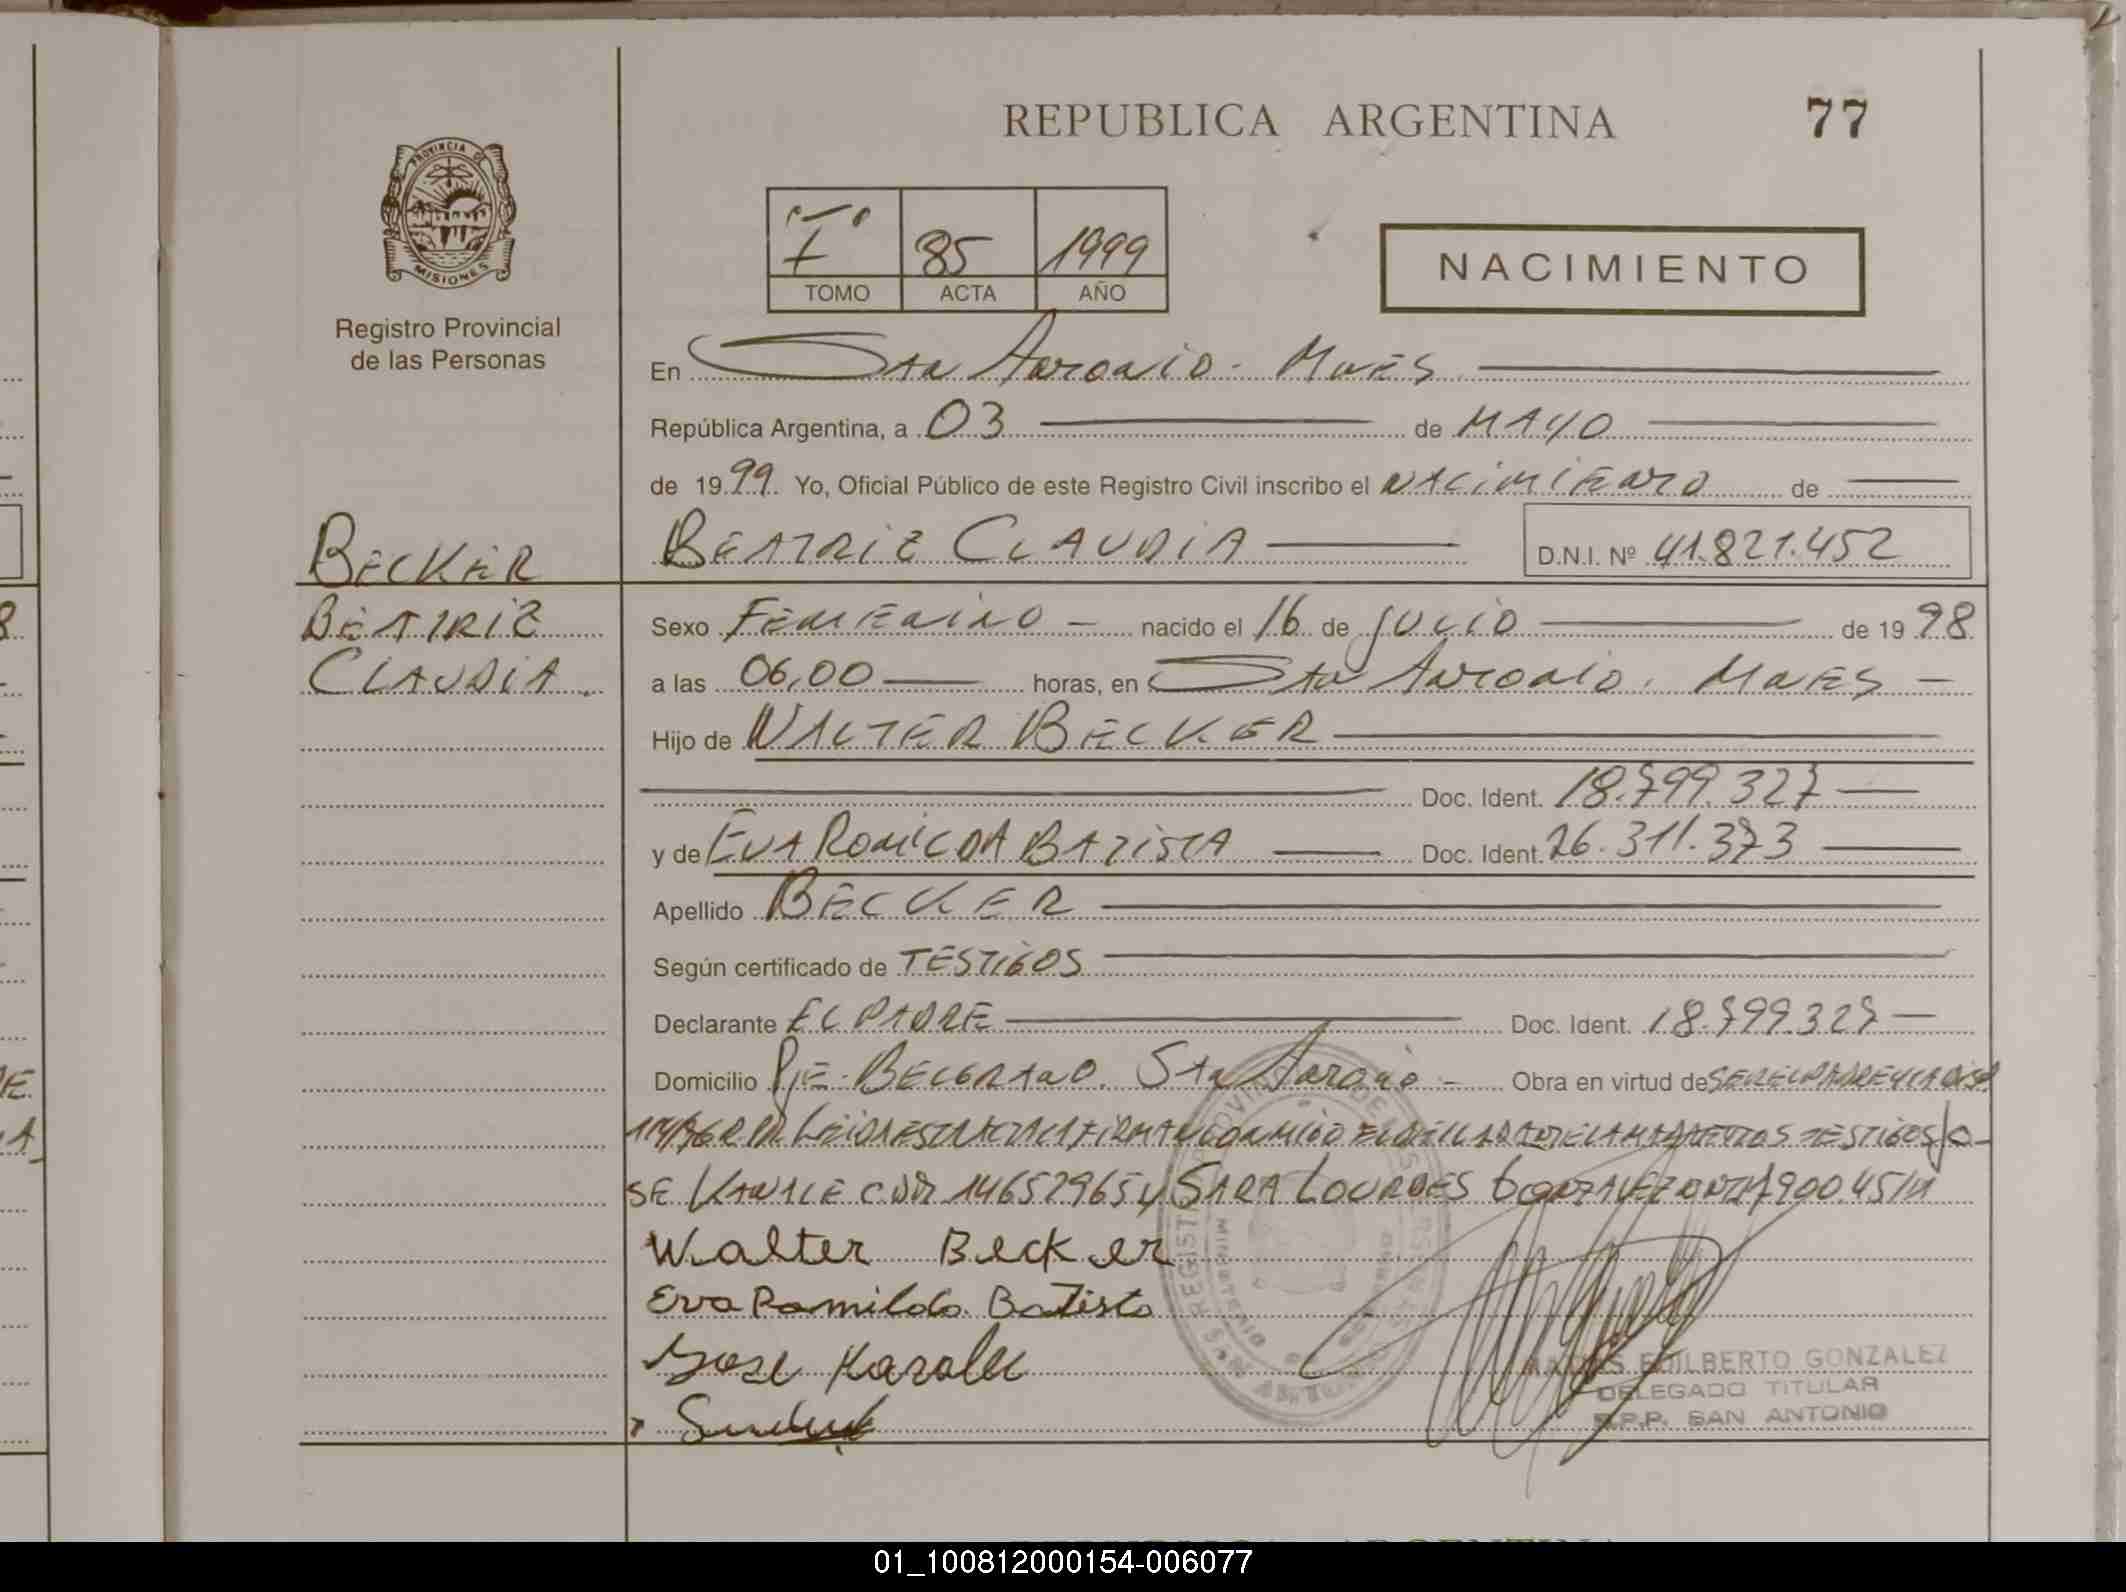 REPUBLICA ARGENTINA
77
PROVINCIA DE
MISIONES
Registro Provincial
de las Personas
"I"
85
1999
TOMO
ACTA
AÑO
NACIMIENTO
En San Antonio - Mnes
República Argentina, a 03 de MAYO
de 1999. Yo, Oficial Público de este Registro Civil inscribo el NACIMIENTO de
BEATRIZ CLAUDIA D.N.I. Nº 41.821.452
BECKER
BEATRIZ
CLAUDIA.
Sexo FEMENINO - nacido el 16 de JULIO de 1998
a las 06,00 horas, en San Antonio. Mnes -
Hijo de WALTER BECKER
Doc. Ident. 18.799.327
y de EVA ROMILDA BATISTA Doc. Ident. 26.311.373
Apellido BECKER
Según certificado de TESTIGOS
Declarante EL PADRE Doc. Ident. 18.799.327
Domicilio Pje. BELGRANO. San Antonio - Obra en virtud de SER EL PADRE Y LA DISP
LEIDA ESTA ACTA LA FIRMAN CONMIGO EL DECLARANTE LA MADRE TESTIGOS JO-
SE 14652965 y SARA LOURDES GONZALEZ
Walter Becker
Eva Romilda Batista
Jose
EDILBERTO GONZALEZ
DELEGADO TITULAR
R.P.P. SAN ANTONIO
01_100812000154-006077